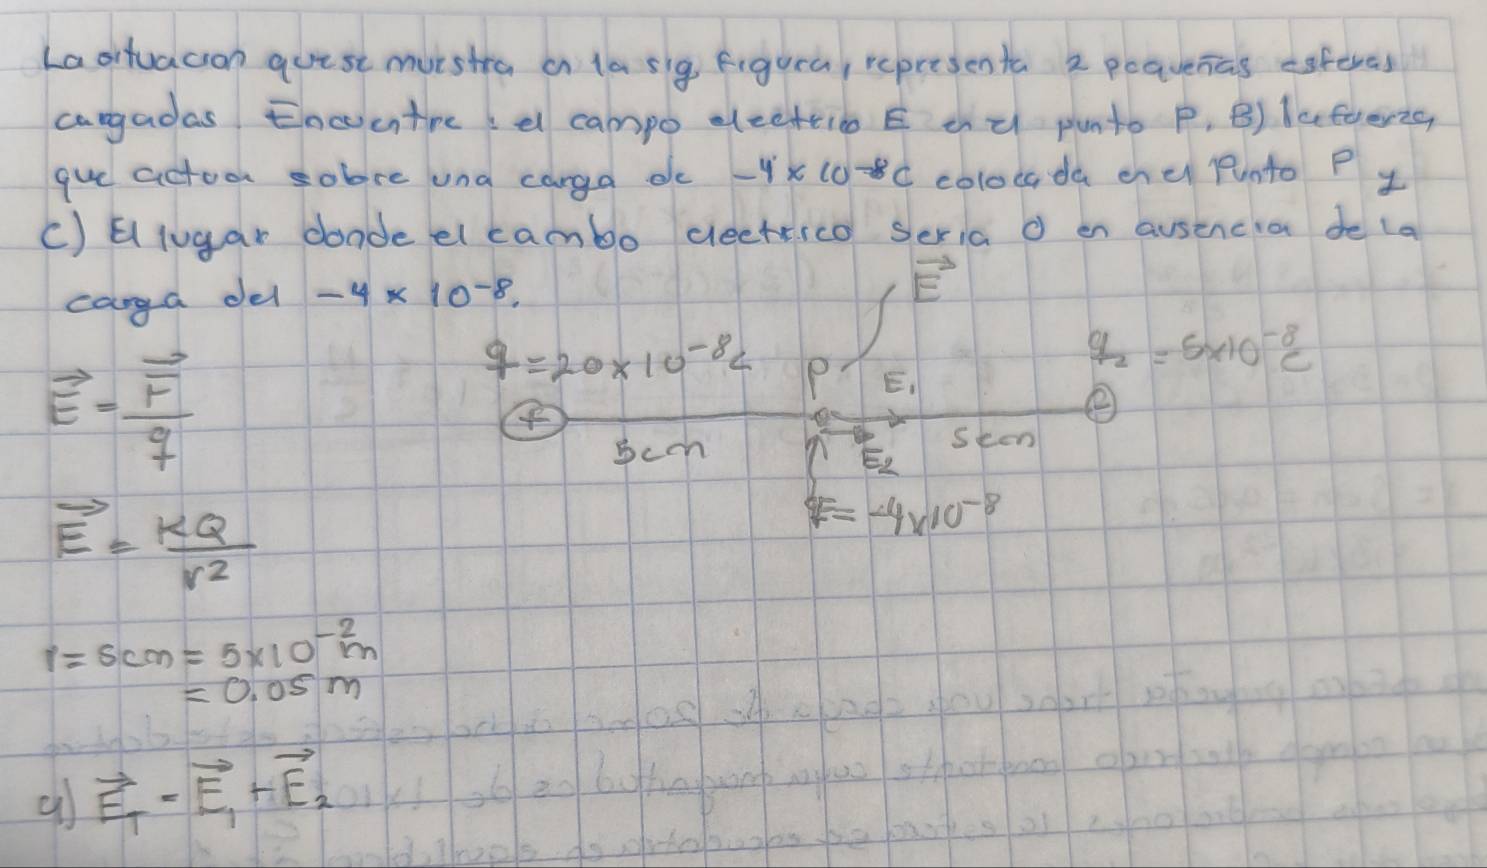 La situacion que se muestra en la sig figura, representa 2 pequeñas esferas
cargadas. Encuentre: el campo electrico E en el punto P. B) la fuerza
que actua sobre una carga de -4 x 10-8C colocada en el Punto P y
C) El lugar donde el cambo electrico seria 0 en ausencia de la
carga del -4 x 10-8.
E
q = 20 x 10-8c
P
E1
q2 = 5x10-8 C
E = F/q
+
-
5cm
E2
5cm
= -4x10-8
E = KQ/r2
r = 5cm = 5x10-2 m
= 0.05 m
a) ET = E1 + E2